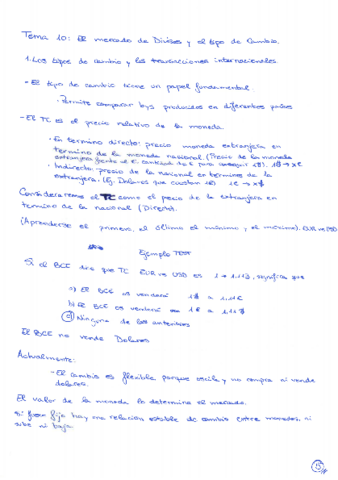 Tema 10: El mercado de Divisas y el tipo de Cambio.
1. Los tipos de cambio y las transacciones internacionales
- El tipo de cambio tiene un papel fundamental.
· Permite comparar bys producidos en diferentes países
- El TC es el precio relativo de la moneda.
· En termino directo: precio moneda extranjera en
termino de la moneda nacional (Precio de la moneda
extranjera frente al €. cantidad de € para conseguir 1$). 1$ → x€
· Indirecto: precio de la nacional en terminos de la
extranjera. (Ej. Dolares que cuestan 1€) 1€ → x$
Consideraremos el TC como el precio de la extranjera en
termino de la nacional (Directo).
(Aprenderse el primero, el último el mínimo y el máximo). EUR vs USD
Ejemplo TEST
Si el BCE dice que TC EUR vs USD es 1 → 1.113, significa que
a) El BCE os venderá 1$ = 1,11€
b) El BCE os venderá 1€ = 1,11$
c) Ninguna de las anteriores
El BCE no vende Dolares
Actualmente:
- El cambio es flexible porque oscila y no compra ni vende
dolares.
El valor de la moneda lo determina el mercado.
Si fuera fijo hay una relación estable de cambio entre monedas, ni
sube ni baja.